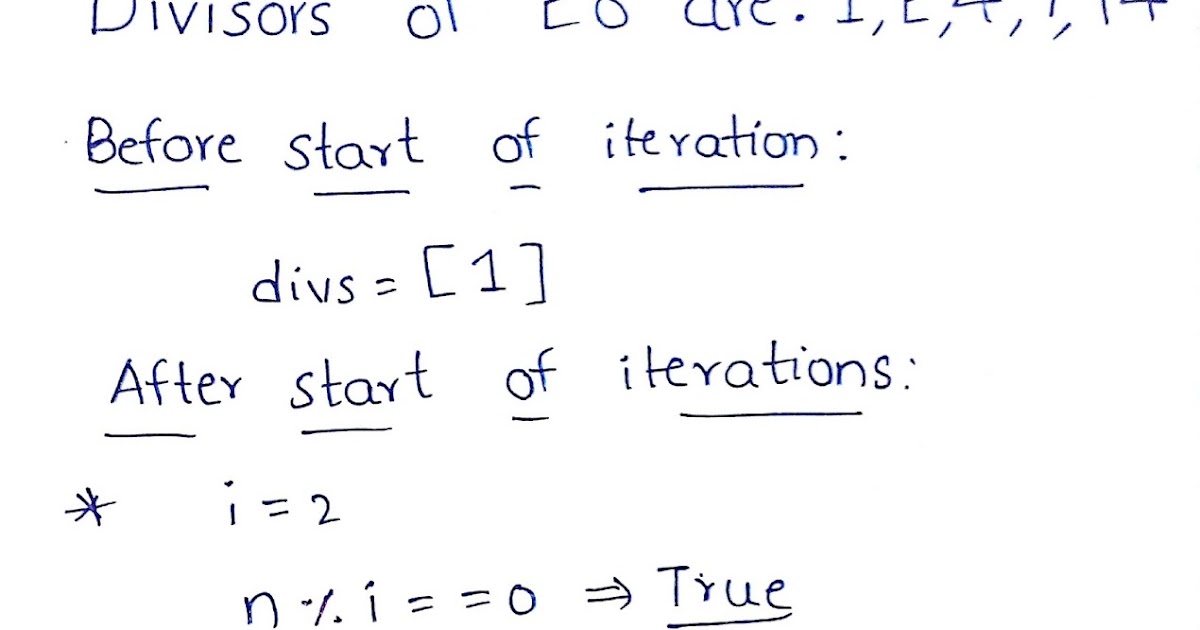 Divisors of 28 are: 1, 2, 4, 7, 14
Before start of iteration:
divs = [1]
After start of iterations:
* i = 2
n % i = = 0 ⇒ True